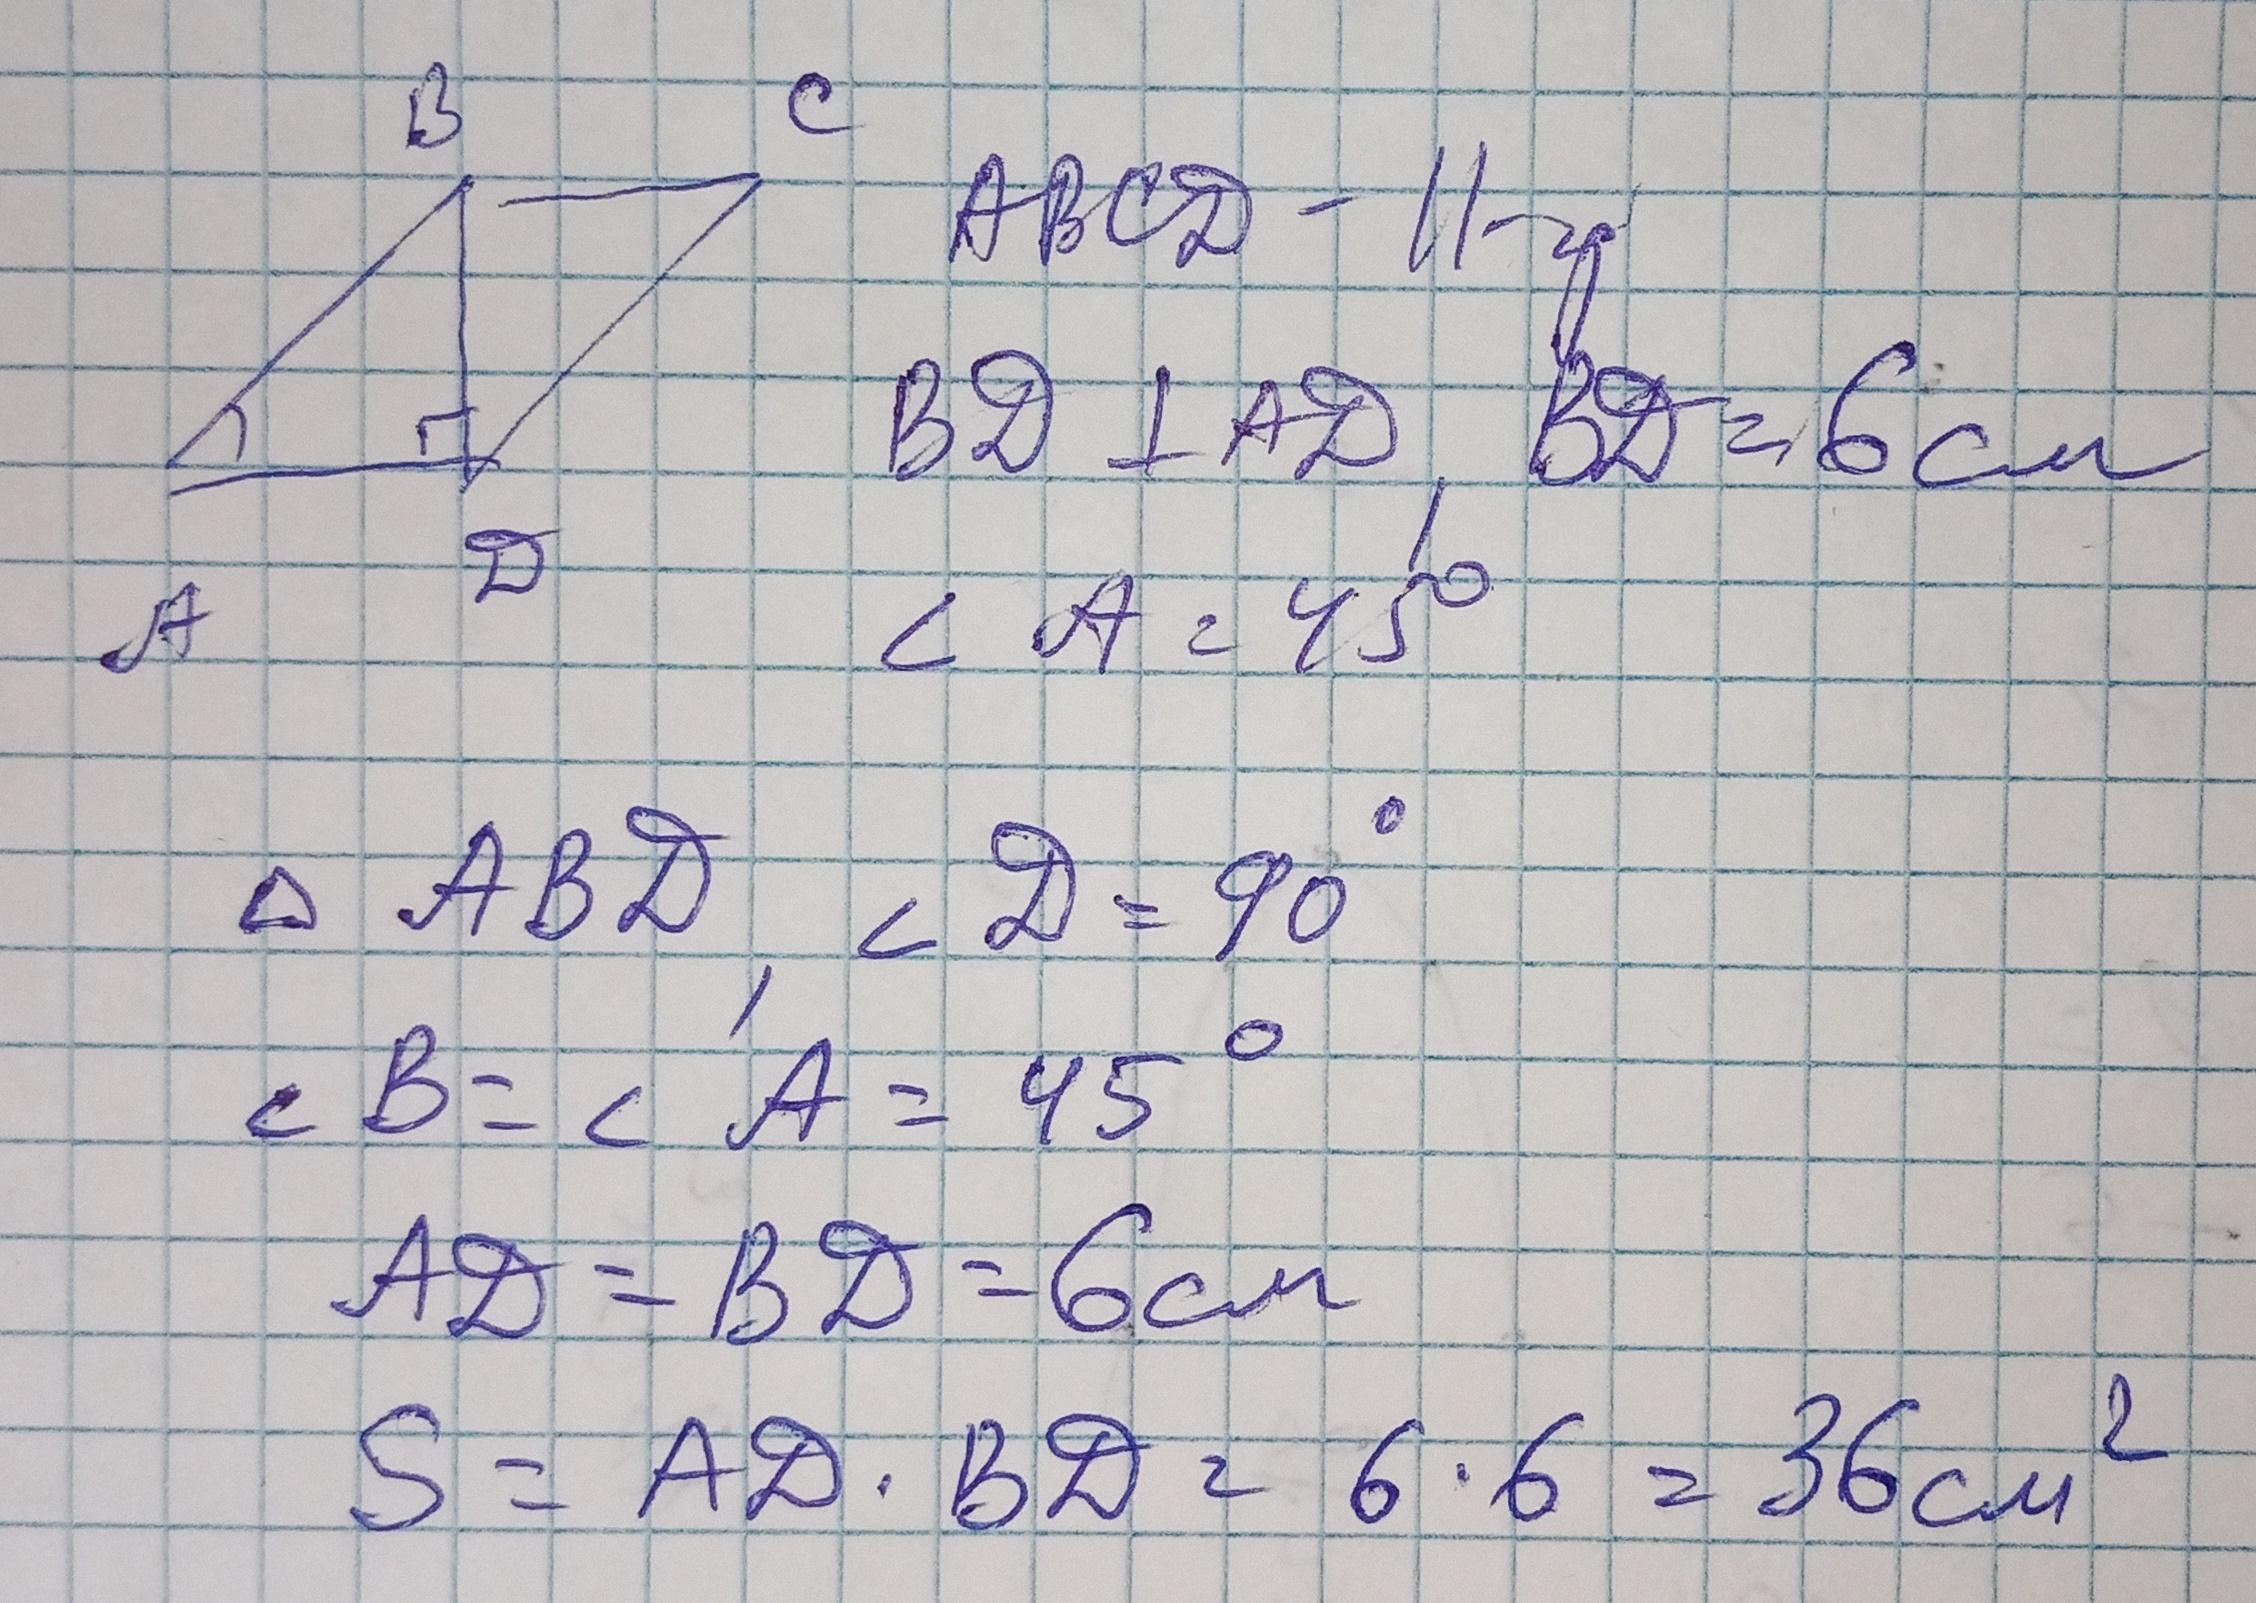 B C
A D
ABCD - ||-м
BD ⊥ AD, BD = 6 см
∠ A = 45°
△ ABD, ∠ D = 90°
∠ B = ∠ A = 45°
AD = BD = 6 см
S = AD · BD = 6 · 6 = 36 см²